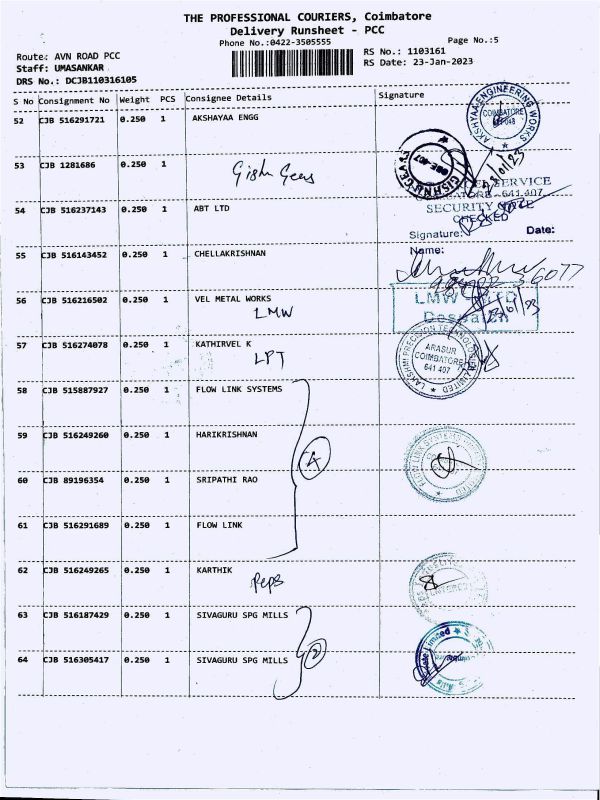 THE PROFESSIONAL COURIERS, Coimbatore
Delivery Runsheet - PCC
Phone No.:0422-3505555
Page No.:5
Route: AVN ROAD PCC
RS No.: 1103161
Staff: UMASANKAR
RS Date: 23-Jan-2023
DRS No.: DCJB110316105
S No Consignment No Weight PCS Consignee Details Signature
52 CJB 516291721 0.250 1 AKSHAYAA ENGG
AKSHAYAA ENGINEERING WORKS
COIMBATORE
53 CJB 1281686 0.250 1
SERVICE
641 407
54 CJB 516237143 0.250 1 ABT LTD
SECURITY
CHECKED
Signature:
Date:
55 CJB 516143452 0.250 1 CHELLAKRISHNAN
Name:
56 CJB 516216502 0.250 1 VEL METAL WORKS
LMW
LMW
Despatch
57 CJB 516274078 0.250 1 KATHIRVEL K
LPT
LAKSHMI PRECISION TECHNOLOGIES LIMITED
ARASUR
COIMBATORE
641 407
58 CJB 515887927 0.250 1 FLOW LINK SYSTEMS
59 CJB 516249260 0.250 1 HARIKRISHNAN
4
FLOW LINK SYSTEMS
60 CJB 89196354 0.250 1 SRIPATHI RAO
61 CJB 516291689 0.250 1 FLOW LINK
62 CJB 516249265 0.250 1 KARTHIK
Peps
63 CJB 516187429 0.250 1 SIVAGURU SPG MILLS
2
64 CJB 516305417 0.250 1 SIVAGURU SPG MILLS